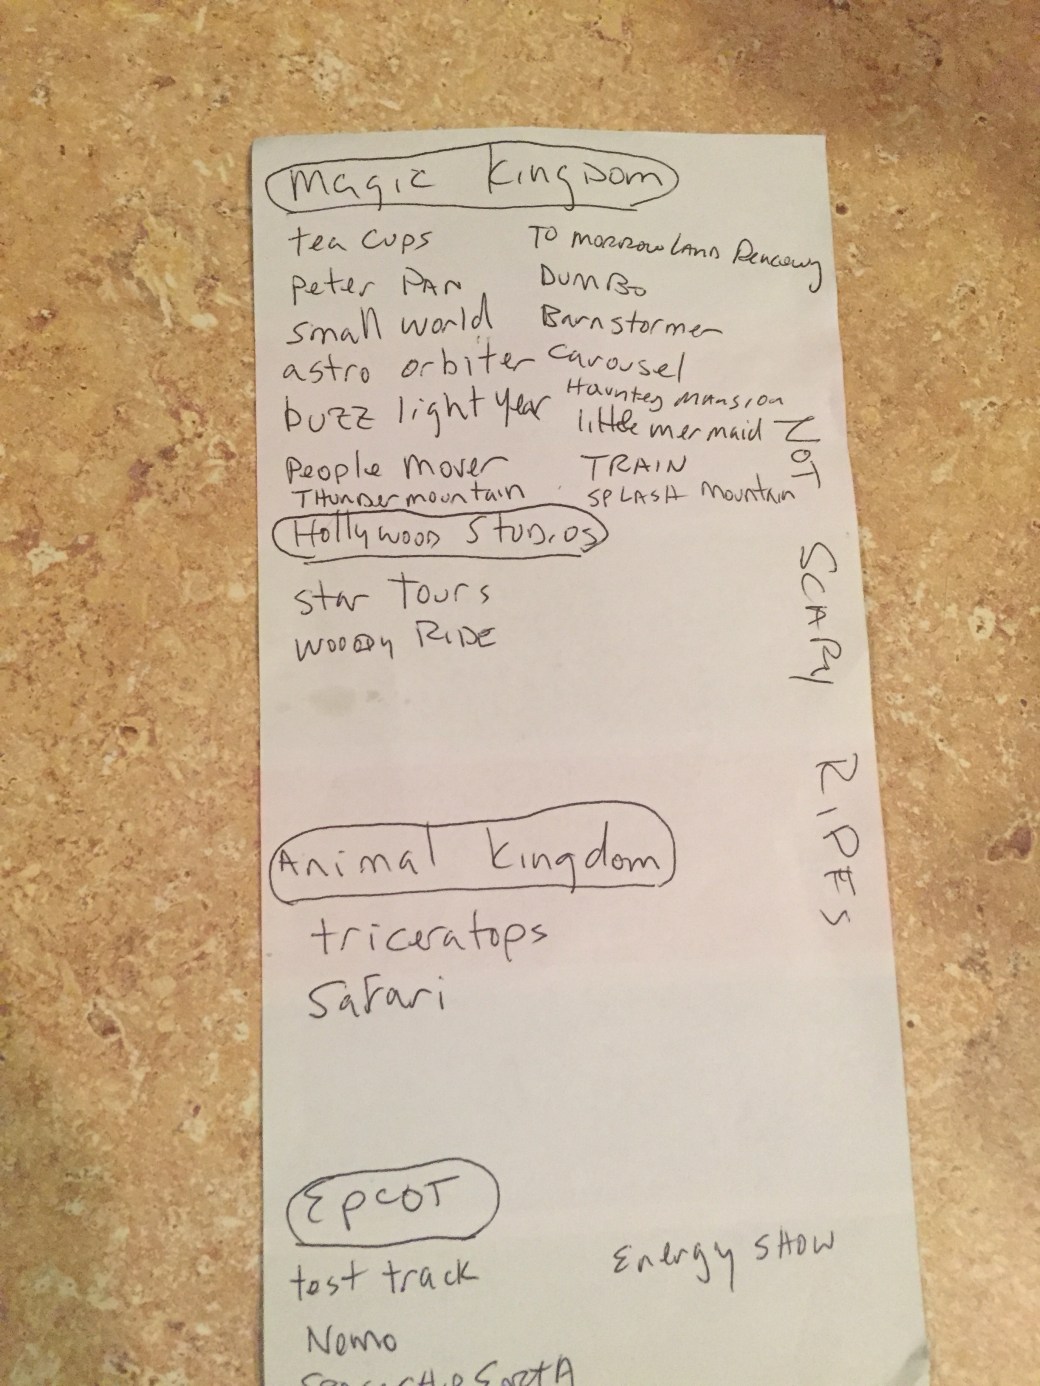 Magic Kingdom
tea cups
Peter PAN
small world
astro orbiter
buzz light year
People mover
THunDer mountain
TOMORROWLAND
DUMBO
Barnstormer
carousel
Haunted MAnsion
little mermaid
TRAIN
SPLASH Mountain
NOT SCARY RIDES
Hollywood STUDIOS
Star Tours
WOODY RIDE
Animal Kingdom
triceratops
Safari
EPCOT
test track
Nemo
Energy SHOW